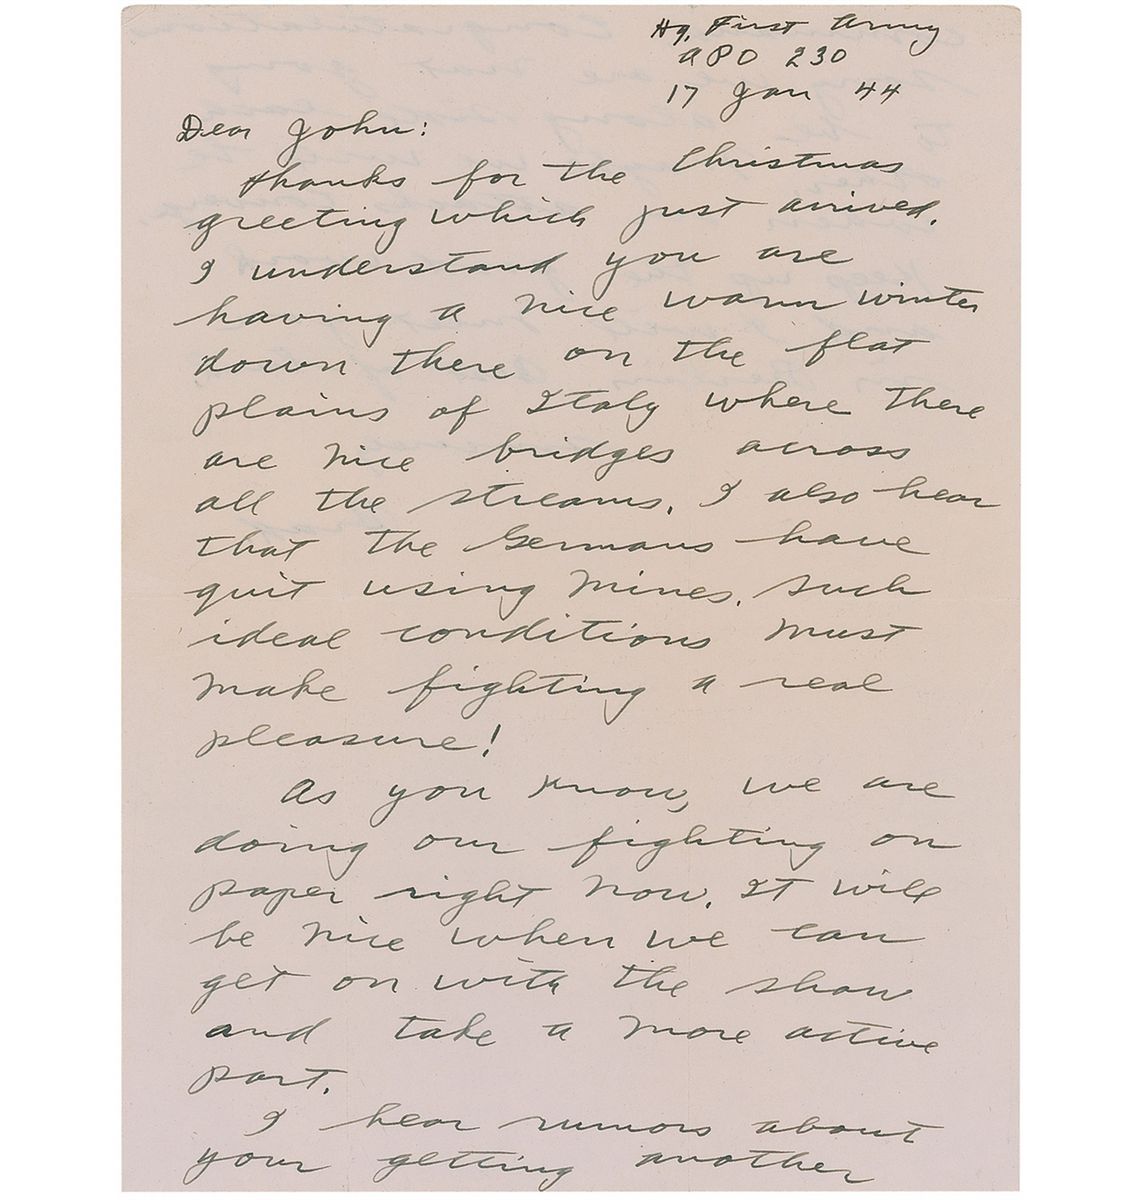 Hq. First Army
APO 230
17 Jan 44
Dear John:
Thanks for the Christmas
greeting which just arrived.
I understand you are
having a nice warm winter
down there on the flat
plains of Italy where there
are nice bridges across
all the streams. I also hear
that the Germans have
quit using mines. Such
ideal conditions must
make fighting a real
pleasure!
As you know, we are
doing our fighting on
paper right now. It will
be nice when we can
get on with the show
and take a more active
part.
I hear rumors about
your getting another